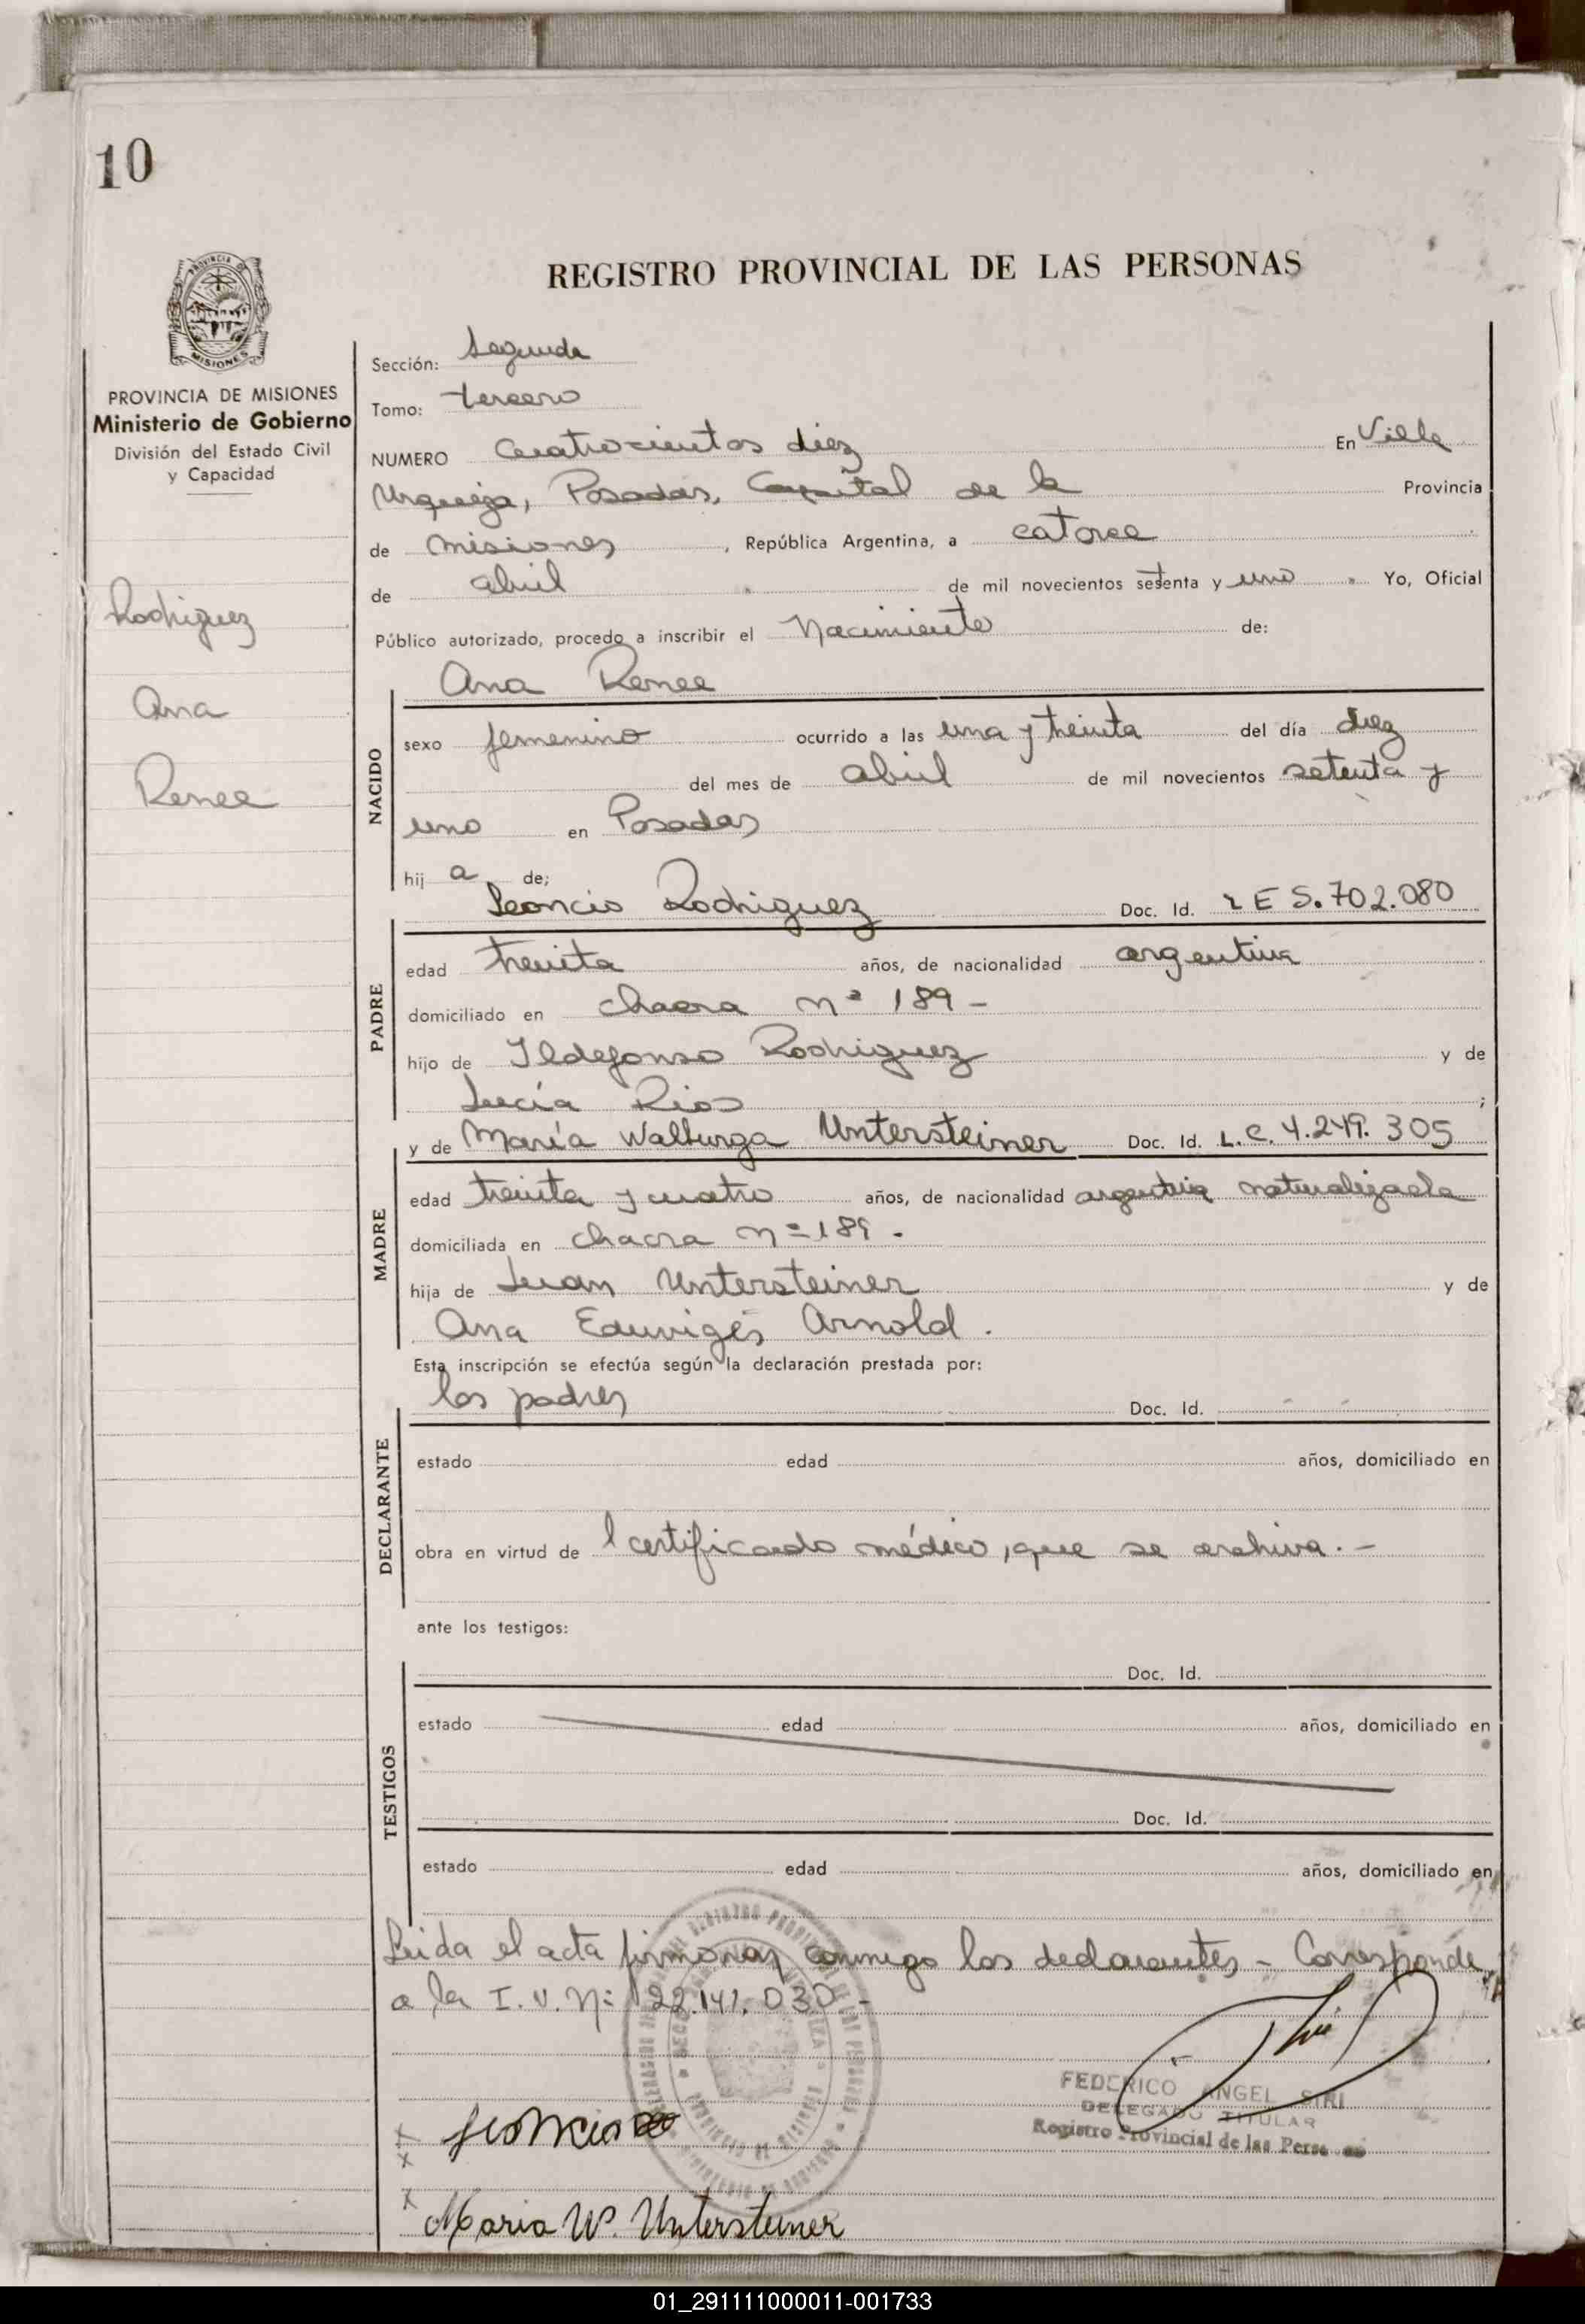 10
REGISTRO PROVINCIAL DE LAS PERSONAS
MISIONES
PROVINCIA DE MISIONES
Ministerio de Gobierno
División del Estado Civil
y Capacidad
Rodriguez
Ana
Renee
Sección: Segunda
Tomo: tercero
NUMERO Cuatrocientos diez En Villa
Urquiza, Posadas, Capital de la Provincia
de Misiones, República Argentina, a catorce
de abril de mil novecientos setenta y uno. Yo, Oficial
Público autorizado, procedo a inscribir el Nacimiento de:
Ana Renee
NACIDO
sexo femenino ocurrido a las una y treinta del día diez
del mes de abril de mil novecientos setenta y
uno en Posadas
hij a de;
Leoncio Rodriguez Doc. Id. L E 5.702.080
PADRE
edad treinta años, de nacionalidad argentina
domiciliado en chacra nº 189 -
hijo de Ildefonso Rodriguez y de
Lucía Rios ;
y de María Walburga Untersteiner Doc. Id. L.C. 4.249.305
MADRE
edad treinta y cuatro años, de nacionalidad argentina naturalizada
domiciliada en chacra nº 189.
hija de Juan Untersteiner y de
Ana Eduviges Arnold.
Esta inscripción se efectúa según la declaración prestada por:
los padres Doc. Id.
DECLARANTE
estado edad años, domiciliado en
obra en virtud de l certificado médico, que se archiva. -
ante los testigos:
Doc. Id.
TESTIGOS
estado edad años, domiciliado en
Doc. Id.
estado edad años, domiciliado en
Leida el acta firmaron conmigo los declarantes - Corresponde
a la I. U. Nº 22.141.030 -
FEDERICO ANGEL SIRI
DELEGADO TITULAR
Registro Provincial de las Personas
Leoncio
Maria W. Untersteiner
01_291111000011-001733